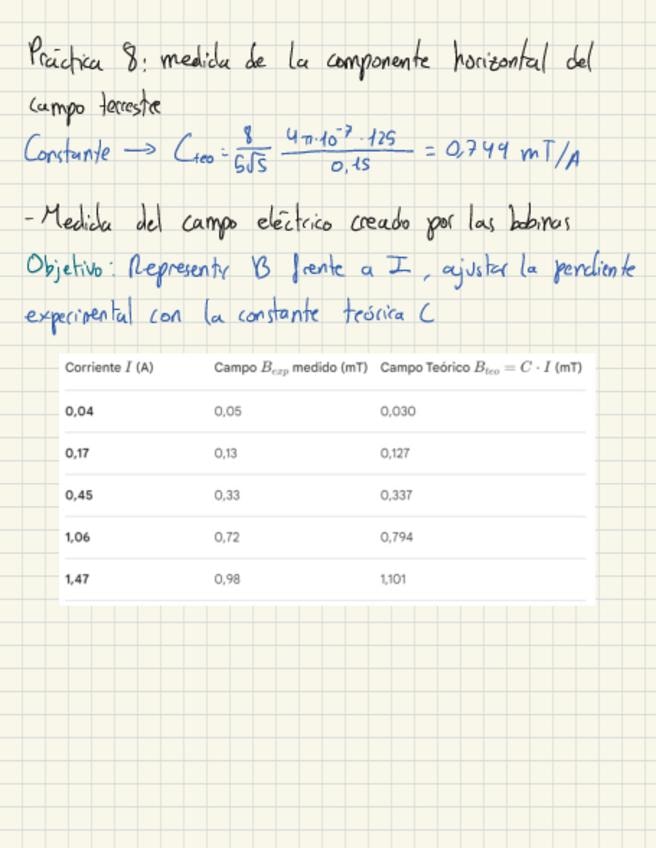 Práctica 8: medida de la componente horizontal del
campo terrestre
Constante → Cteo = 8/5√5 4π·10⁻⁷·125/0,15 = 0,749 mT/A
- Medida del campo eléctrico creado por las bobinas
Objetivo: Representr B frente a I, ajustar la pendiente
experimental con la constante teórica C
Corriente I (A) Campo Bexp medido (mT) Campo Teórico Bteo = C · I (mT)
0,04 0,05 0,030
0,17 0,13 0,127
0,45 0,33 0,337
1,06 0,72 0,794
1,47 0,98 1,101